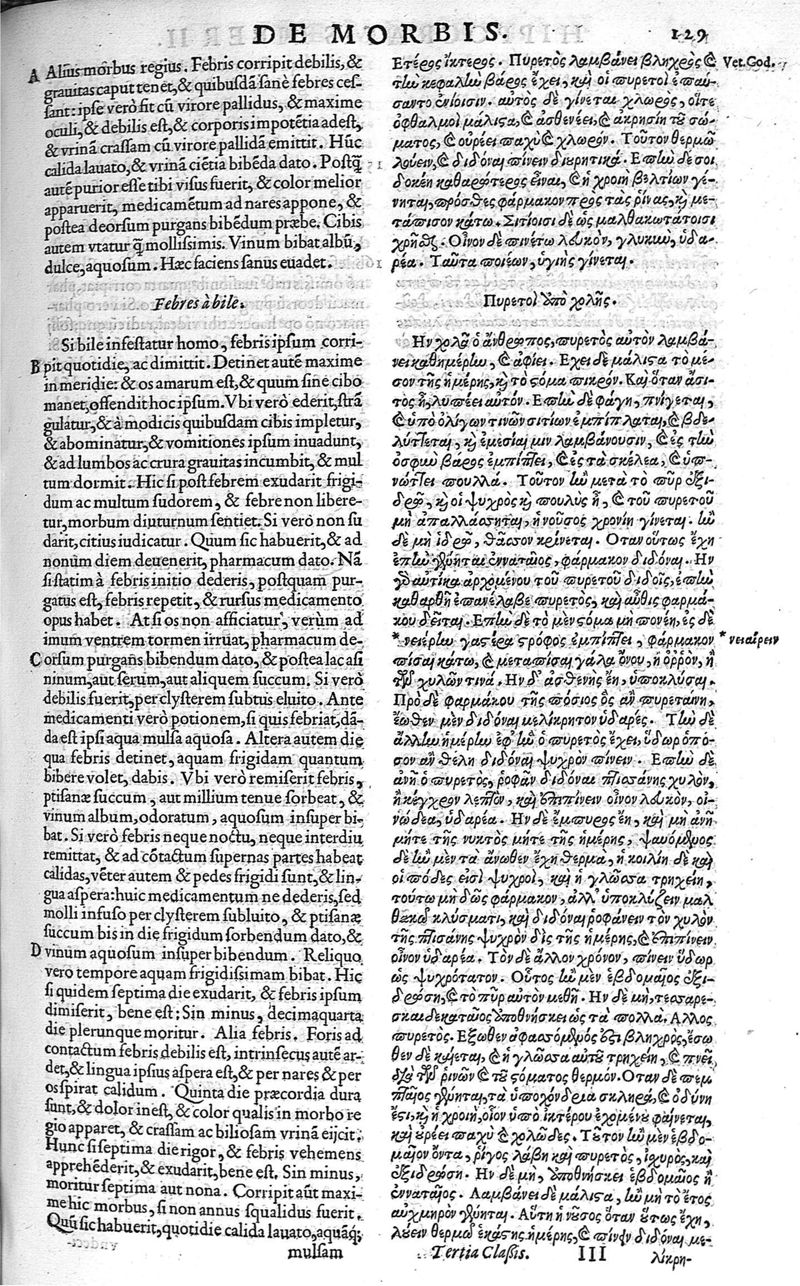 DE MORBIS.
129
A Alius morbus regius. Febris corripit debilis, &
grauitas caput tenet, & quibusdā sanè febres ces-
sant: ipse verò fit cū virore pallidus, & maxime
oculi, & debilis est, & corporis impotētia adest,
& vrinā crassam cū virore pallidā emittit. Hūc
calida lauato, & vrinā ciētia bibēda dato. Postq̄
autē purior esse tibi visus fuerit, & color melior
apparuerit, medicamētum ad nares appone, &
postea deorsum purgans bibēdum præbe. Cibis
autem vtatur q̄ mollissimis. Vinum bibat albū,
dulce, aquosum. Hæc faciens sanus euadet.
Febres à bile.
Si bile infestatur homo, febris ipsum corri-
B pit quotidie, ac dimittit. Detinet autē maxime
in meridie: & os amarum est, & quum sine cibo
manet, offendit hoc ipsum. Vbi verò ederit, strā
gulatur, & à modicis quibusdam cibis impletur,
& abominatur, & vomitiones ipsum inuadunt,
& ad lumbos ac crura grauitas incumbit, & mul
tum dormit. Hic si post febrem exudarit frigi-
dum ac multum sudorem, & febre non libere-
tur, morbum diuturnum sentiet. Si verò non su
darit, citius iudicatur. Quum sic habuerit, & ad
nonum diem deuenerit, pharmacum dato. Nā
si statim à febris initio dederis, postquam pur-
gatus est, febris repetit, & rursus medicamento
opus habet. At si os non afficiatur, verùm ad
imum ventrem tormen irruat, pharmacum de-
C orsum purgans bibendum dato, & postea lac asi
ninum, aut serum, aut aliquem succum. Si verò
debilis fuerit, per clysterem subtus eluito. Ante
medicamenti verò potionem, si quis febriat, dā-
da est ipsi aqua mulsa aquosa. Altera autem die
qua febris detinet, aquam frigidam quantum
bibere volet, dabis. Vbi verò remiserit febris,
ptisanæ succum, aut millium tenue sorbeat, &
vinum album, odoratum, aquosum insuper bi-
bat. Si verò febris neque noctu, neque interdiu
remittat, & ad cōtactum supernas partes habeat
calidas, vēter autem & pedes frigidi sunt, & lin-
gua aspera: huic medicamentum ne dederis, sed
molli infuso per clysterem subluito, & ptisanæ
succum bis in die frigidum sorbendum dato, &
D vinum aquosum insuper bibendum. Reliquo
verò tempore aquam frigidissimam bibat. Hic
si quidem septima die exudarit, & febris ipsum
dimiserit, bene est: Sin minus, decimaquarta
die plerunque moritur. Alia febris. Foris ad
contactum febris debilis est, intrinsecus autē ar-
det, & lingua ipsius aspera est, & per nares & per
os spirat calidum. Quinta die præcordia dura
sunt, & dolor inest, & color qualis in morbo re
gio apparet, & crassam ac biliosam vrinā eijcit.
Hunc si septima die rigor, & febris vehemens
apprehēderit, & exudarit, bene est. Sin minus,
moritur septima aut nona. Corripit aūt maxi-
me hic morbus, si non annus squalidus fuerit.
Quū sic habuerit, quotidie calida lauato, aquāq;
mulsam
Ἕτερος ἴκτερος. Πυρετὸς λαμβάνει βληχρὸς καὶ
Vet. Cod.
τὴν κεφαλὴν βάρος ἔχει, καὶ οἱ πυρετοὶ ἐπαύ-
σαντο ἐνίοισιν. αὐτὸς δὲ γίνεται χλωρὸς, οἵτε
ὀφθαλμοὶ μάλιστα, καὶ ἀσθενέει, καὶ ἀκρησίη τοῦ σώ-
ματος, καὶ οὐρέει παχὺ καὶ χλωρόν. Τοῦτον θερμῷ
λούειν, καὶ διδόναι πίνειν διουρητικά. Ἐπὴν δέ σοι
δοκέῃ καθαρώτερος εἶναι, καὶ ἡ χροιὴ βελτίων γέ-
νηται, πρόσθες φάρμακον πρὸς τὰς ῥίνας, καὶ με-
τάπισον κάτω. Σιτίοισι δὲ ὡς μαλθακωτάτοισι
χρήσθω. Οἶνον δὲ πινέτω λευκὸν, γλυκὺν, ὑδα-
ρέα. Ταῦτα ποιέων, ὑγιὴς γίνεται.
Πυρετοὶ ὑπὸ χολῆς.
Ην χολᾷ ὁ ἄνθρωπος, πυρετὸς αὐτὸν λαμβά-
νει καθημέρην, καὶ ἀφίει. Ἔχει δὲ μάλιστα τὸ μέ-
σον τῆς ἡμέρης, καὶ τὸ στόμα πικρόν. Καὶ ὅταν ἄσι-
τος ᾖ, λυπέει αὐτόν. Ἐπὴν δὲ φάγῃ, πνίγεται,
καὶ ὑπὸ ὀλίγων τινῶν σιτίων ἐμπίπλαται, καὶ βδε-
λύττεται, καὶ ἐμεσίαι μιν λαμβάνουσιν, καὶ ἐς τὴν
ὀσφὺν βάρος ἐμπίπτει, καὶ ἐς τὰ σκέλεα, καὶ ὑπ-
νώττει πουλλά. Τοῦτον ἢν μετὰ τὸ πῦρ ἐξι-
δρῷ, καὶ οἱ ψυχρὸς καὶ πουλὺς ᾖ, καὶ τοῦ πυρετοῦ
μὴ ἀπαλλάσσηται, ἡ νοῦσος χρονίη γίνεται. ἢν
δὲ μὴ ἱδρῷ, θᾶσσον κρίνεται. Ὅταν οὕτως ἔχῃ
ἐπὴν γένηται ἐνναταῖος, φάρμακον διδόναι. Ἢν
γὰρ αὐτίκα ἀρχομένου τοῦ πυρετοῦ διδοῖς, ἐπὴν
καθαρθῇ ἐπανέλαβε πυρετὸς, καὶ αὖθις φαρμά-
κου δεῖται. Ἐπὴν δὲ τὸ μὲν στόμα μὴ πονέῃ, ἐς δὲ
* νειέρην γαστέρα στρόφος ἐμπίπτει, φάρμακον
* νειαίρειν
πίσαι κάτω, καὶ μεταπῖσαι γάλα ὄνου, ἢ ὀῤῥὸν, ἢ
τῶν χυλῶν τινά. Ἢν δ' ἀσθενὴς ἔῃ, ὑποκλύσαι.
Πρὸ δὲ φαρμάκου τῆς πόσιος ὃς ἂν πυρεταίνῃ,
ἕωθεν μὲν διδόναι μελίκρητον ὑδαρές. Τὴν δὲ
ἄλλην ἡμέρην ἐφ' ἣν ὁ πυρετὸς ἔχει, ὕδωρ ὁπό-
σον ἂν θέλῃ διδόναι ψυχρὸν πίνειν. Ἐπὴν δὲ
ἀνῇ ὁ πυρετὸς, ῥοφᾶν διδόναι πτισάνης χυλὸν,
ἢ κέγχρον λεπτὸν, καὶ ἐπιπίνειν οἶνον λευκὸν, οἰ-
νώδεα, ὑδαρέα. Ἢν δὲ ἔμπυρος ἔῃ, καὶ μὴ ἀνῇ
μήτε τῆς νυκτὸς μήτε τῆς ἡμέρης, ψαυόμενος
δὲ ἢν μὲν τὰ ἄνωθεν ἔχῃ θερμὰ, ἡ κοιλίη δὲ καὶ
οἱ πόδες εἰσὶ ψυχροὶ, καὶ ἡ γλῶσσα τρηχείη,
τούτῳ μὴ δῷς φάρμακον, ἀλλ' ὑποκλύζειν μαλ
θακῷ κλύσματι, καὶ διδόναι ῥοφάνειν τὸν χυλὸν
τῆς πτισάνης ψυχρὸν δὶς τῆς ἡμέρης, καὶ ἐπιπίνειν
οἶνον ὑδαρέα. Τὸν δὲ ἄλλον χρόνον, πίνειν ὕδωρ
ὡς ψυχρότατον. Οὗτος ἢν μὲν ἑβδομαῖος ἐξι-
δρώσῃ, καὶ τὸ πῦρ αὐτὸν μεθῇ. Ἢν δὲ μὴ, τεσσαρε-
σκαιδεκαταῖος ὑποθνήσκει ὡς τὰ πολλά. Ἄλλος
πυρετός. Ἔξωθεν ἀφασσόμενος ἐστὶ βληχρὸς, ἔσω
θεν δὲ καίεται, καὶ ἡ γλῶσσα αὐτοῦ τρηχείη, καὶ πνεῖ
διὰ τῶν ῥινῶν καὶ τοῦ στόματος θερμόν. Ὅταν δὲ πεμ
πταῖος γένηται, τὰ ὑποχόνδρια σκληρὰ, καὶ ὀδύνη
ἔστι, καὶ ἡ χροιὴ, οἷον ὑπὸ ἰκτέρου ἐχομένου φαίνεται,
καὶ οὐρέει παχὺ καὶ χολῶδες. Τοῦτον ἢν μὲν ἑβδο-
μαῖον ὄντα, ῥῖγος λάβῃ καὶ πυρετὸς, ἰσχυρὸς, καὶ
ἐξιδρώσῃ. Ἢν δὲ μὴ, ὑποθνήσκει ἑβδομαῖος ἢ
ἐνναταῖος. Λαμβάνει δὲ μάλιστα, ἢν μὴ τὸ ἔτος
αὐχμηρὸν γένηται. Αὕτη ἡ νοῦσος ὅταν οὕτως ἔχῃ,
λούειν θερμῷ ἑκάστης ἡμέρης, καὶ πίνειν διδόναι με-
Tertia Classis. III
λίκρη-